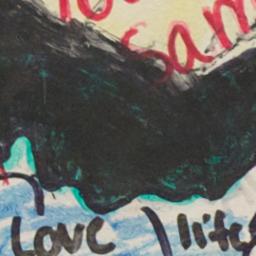 Sam
Love life